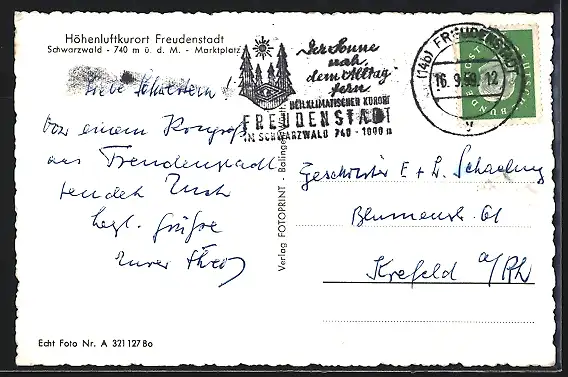 Höhenluftkurort Freudenstadt
Schwarzwald - 740 m ü. d. M. - Marktplatz
Liebe Schwestern!
Von einem Kongreß
aus Freudenstadt
sendet Euch
hrzl. Grüße
Euer Theo
Echt Foto Nr. A 321 127 Bo
Verlag FOTOPRINT - Balingen
Der Sonne
nah,
dem Alltag
fern
HEILKLIMATISCHER KURORT
FREUDENSTADT
IM SCHWARZWALD 740 - 1000 m
(14b) FREUDENSTADT
16. 9. 59. 12
v
Geschwister E + L.
Blumenstr. 61
Krefeld a/Rh